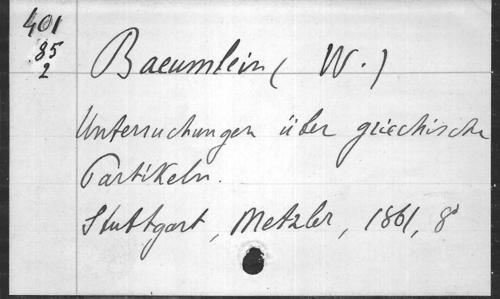 401
85
2
Baeumlein (W.)
Untersuchungen über griechische
Partikeln.
Stuttgart, Metzler, 1861, 8°